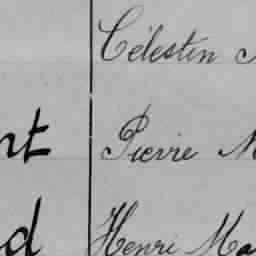 Célestin
nt Pierre M
d Henri Ma